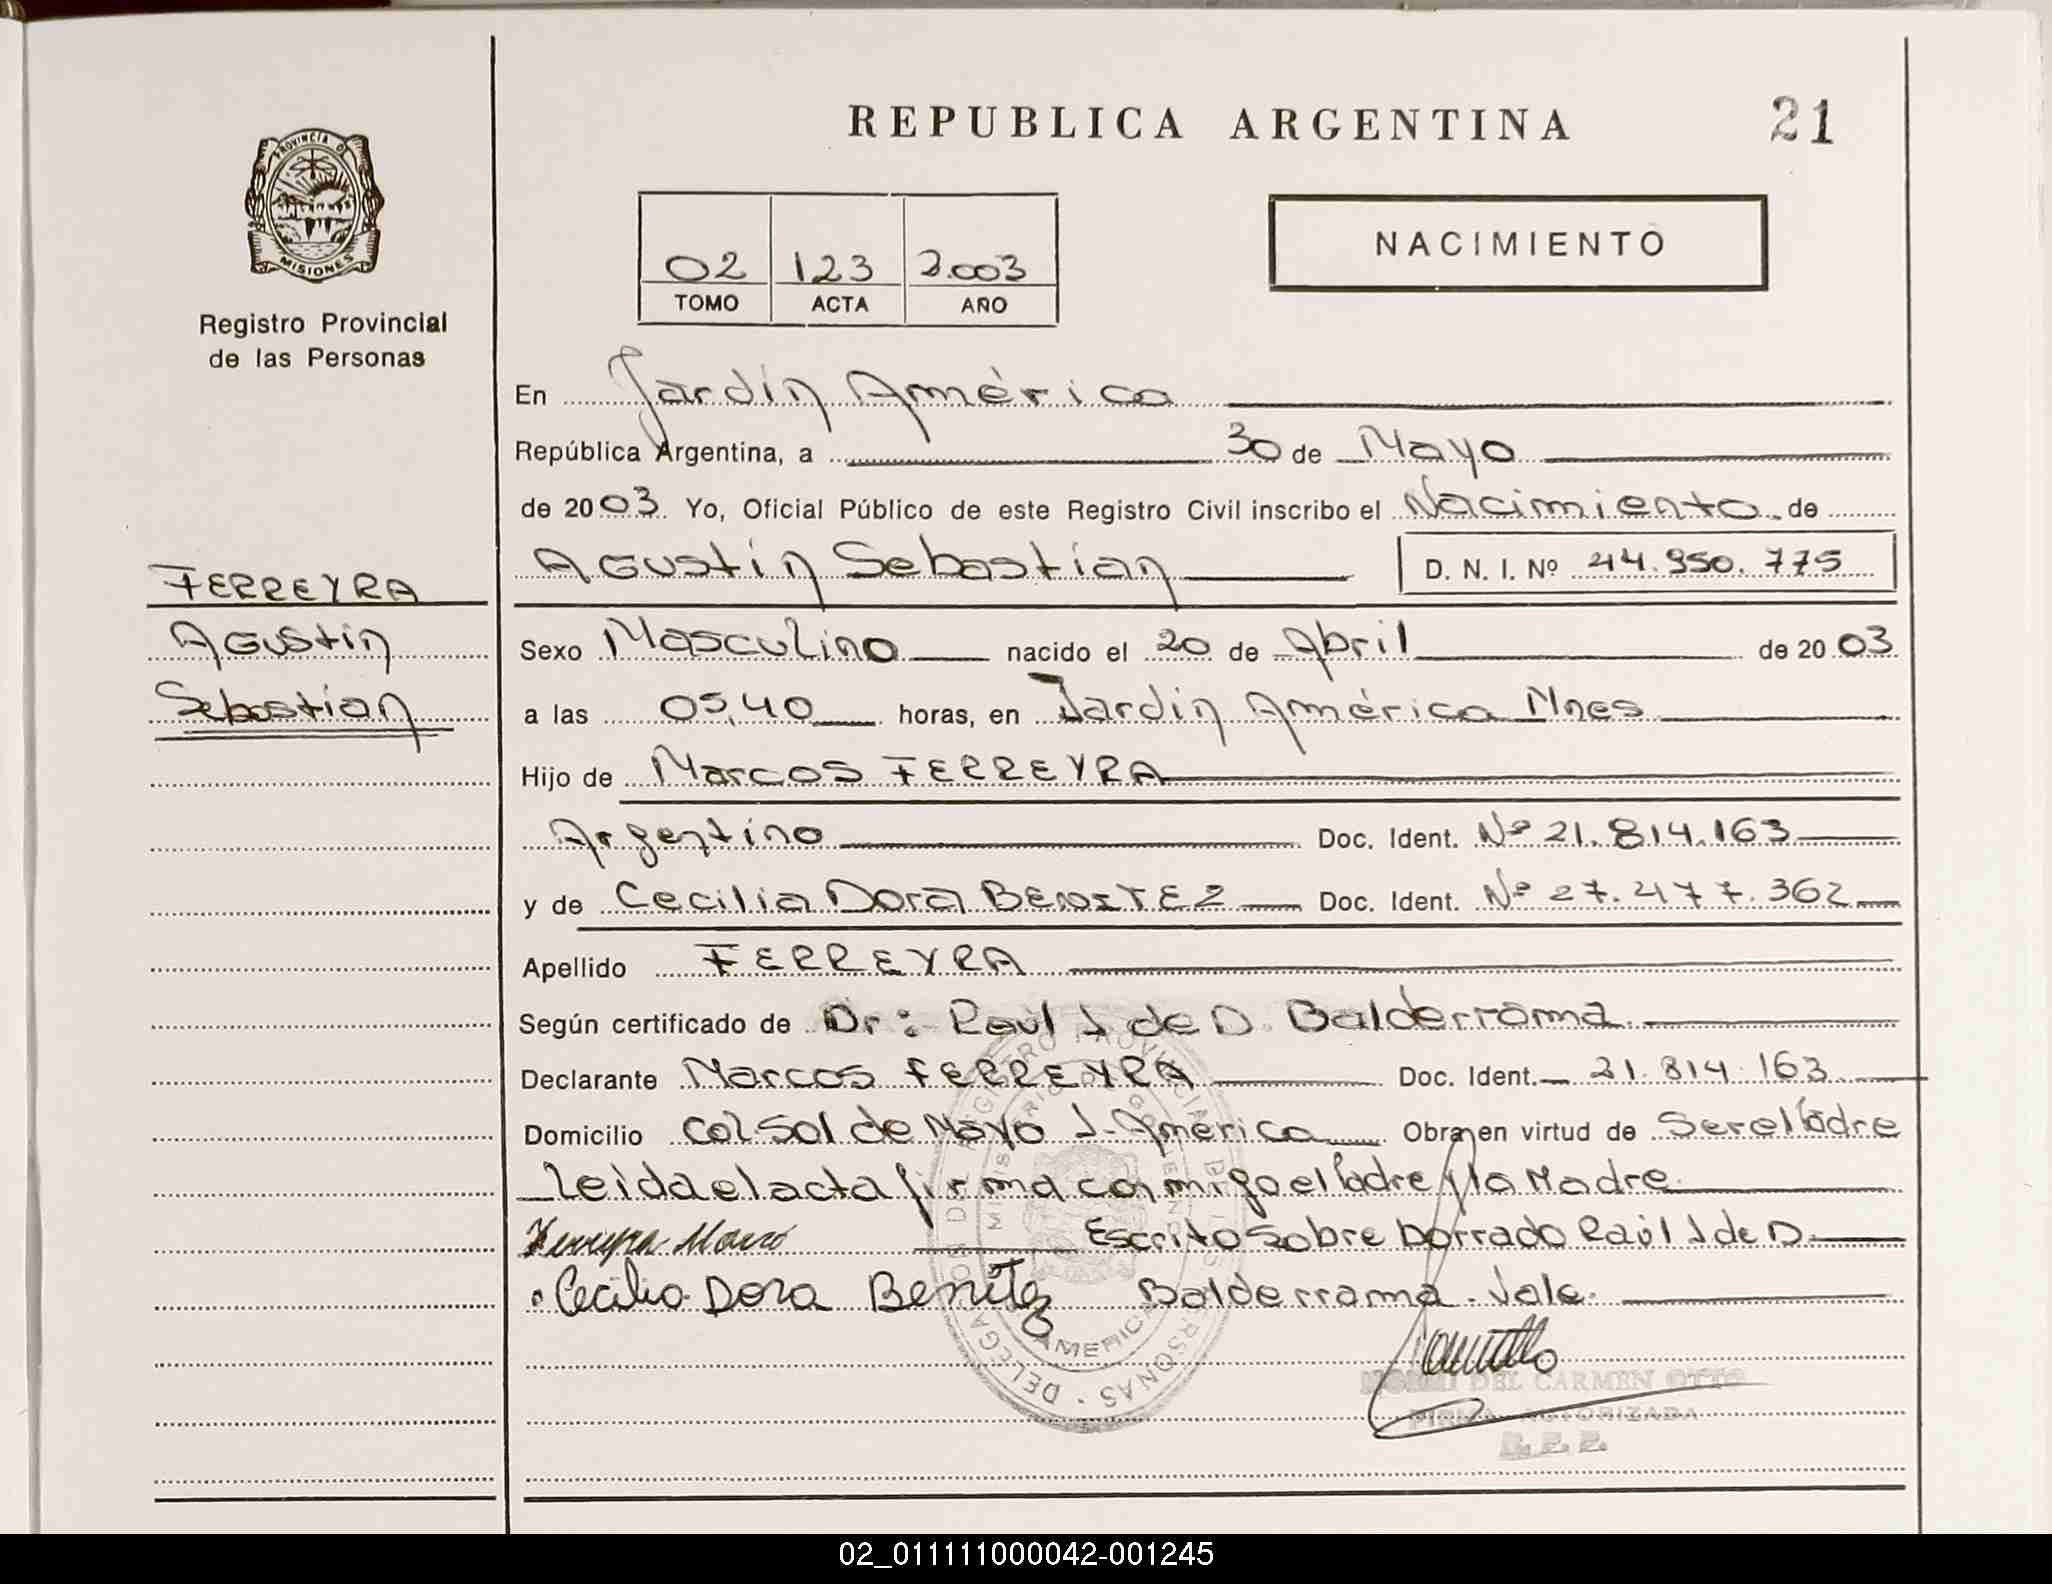 REPUBLICA ARGENTINA
21
PROVINCIA DE
MISIONES
Registro Provincial
de las Personas
02 123 2.003
TOMO ACTA AÑO
NACIMIENTO
En Jardín América
República Argentina, a 30 de Mayo
de 2003. Yo, Oficial Público de este Registro Civil inscribo el Nacimiento de
Agustín Sebastian D. N. I. Nº 44.950.775
FERREYRA
Agustín
Sebastian
Sexo Masculino nacido el 20 de Abril de 2003
a las 05,40 horas, en Jardín América Mnes
Hijo de Marcos FERREYRA
Argentino Doc. Ident. Nº 21.814.163
y de Cecilia Dora BENITEZ Doc. Ident. Nº 27.477.362
Apellido FERREYRA
Según certificado de Dr: Raúl J de D. Balderrama
Declarante Marcos FERREYRA Doc. Ident. 21.814.163
Domicilio Col Sol de Mayo J. América Obra en virtud de Ser el Padre
Leida el acta firma conmigo el Padre y la Madre
Ferreyra Escrito Sobre borrado Raúl J de D.
Cecilia Dora Benítez Balderrama. Vale.
DEL CARMEN OTTO
FIRMA AUTORIZADA
R. P. P.
02_011111000042-001245